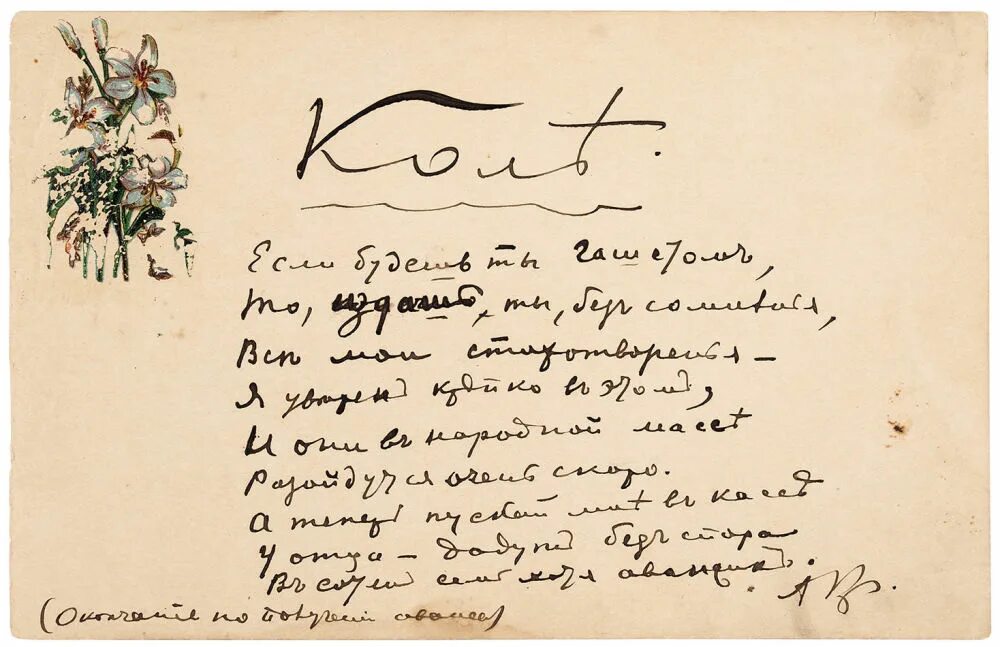 Колѣ.
Если будешь ты гашетомъ,
То, издашь, ты, безъ сомнѣнія,
Всѣ мои стихотворенья —
Я увѣренъ крѣпко въ этомъ,
И они въ народной массѣ
Разойдутся очень скоро.
А теперь пускай мнѣ въ кассѣ
У отца — дадутъ безъ спора
Въ сотен хотя авансикъ.
(Окончаніе по полученіи аванса)